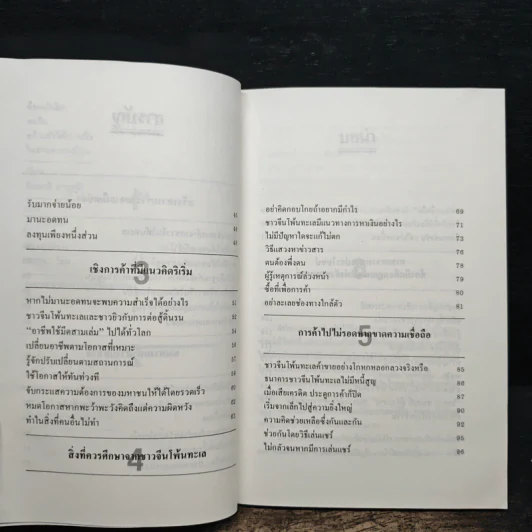 รับมากจ่ายน้อย
มานะอดทน
ลงทุนเพียงหนึ่งส่วน
3
เชิงการค้าที่มีแนวคิดริเริ่ม
หากไม่มานะอดทนจะพบความสำเร็จได้อย่างไร
ชาวจีนโพ้นทะเลและชาวยิวกับการต่อสู้ดิ้นรน
“อาชีพใช้มีดสามเล่ม” ไปได้ทั่วโลก
เปลี่ยนอาชีพตามโอกาสที่เหมาะ
รู้จักปรับเปลี่ยนตามสถานการณ์
ใช้โอกาสให้ทันท่วงที
จับกระแสความต้องการของมหาชนให้ได้โดยรวดเร็ว
หมดโอกาสหากพะว้าพะวังคิดถึงแต่ความผิดหวัง
ทำในสิ่งที่คนอื่นไม่ทำ
4
สิ่งที่ควรศึกษาจากชาวจีนโพ้นทะเล
อย่าคิดกอบโกยถ้าอยากมีกำไร 69
ชาวจีนโพ้นทะเลมีแนวทางการหาเงินอย่างไร 71
ไม่มีปัญหาใดจะแก้ไม่ตก 75
วิธีแสวงหาข่าวสาร 76
ตนต้องพึ่งตน 78
ผู้รู้เหตุการณ์ล่วงหน้า 79
ซื้อที่เพื่อการค้า 80
อย่าละเลยช่องทางใกล้ตัว 81
5
การค้าไปไม่รอดหากขาดความเชื่อถือ
ชาวจีนโพ้นทะเลค้าขายอย่างโกหกหลอกลวงจริงหรือ 85
ธนาคารชาวจีนโพ้นทะเลไม่มีหนี้สูญ
เมื่อเสียเครดิต ประตูการค้าก็ปิด
เริ่มจากเล็กไปสู่ความยิ่งใหญ่
ความคิดช่วยเหลือซึ่งกันและกัน
ช่วยกันโดยวิธีเล่นแชร์
ไม่กลัวจนหากมีการเล่นแชร์